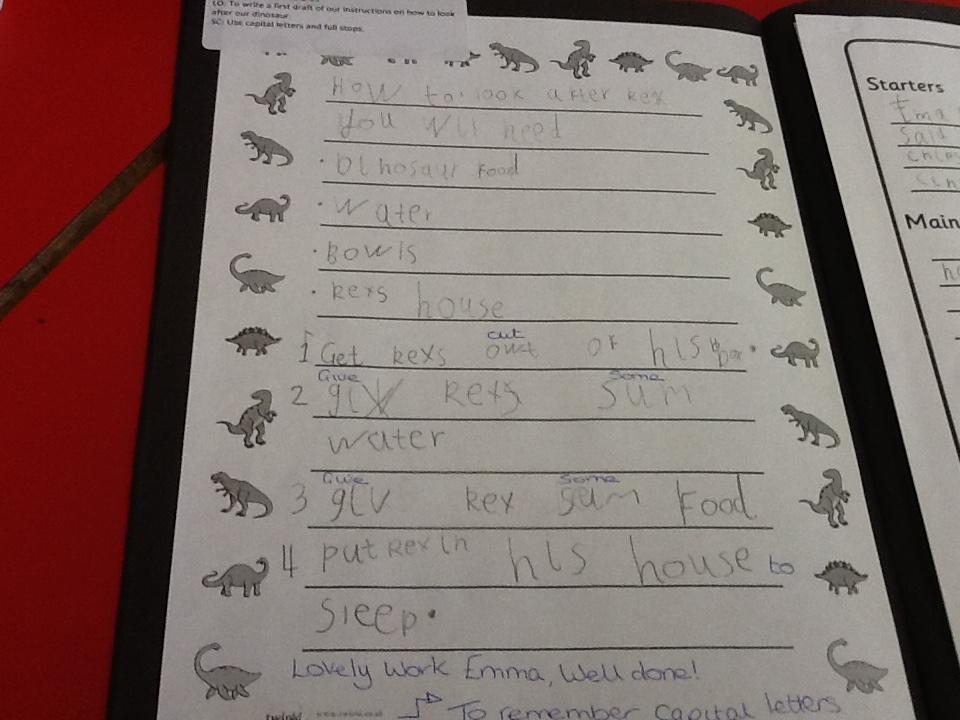 LO: To write a first draft of our instructions on how to look
after our dinosaur.
SC: Use capital letters and full stops.
How to look after rex
you Wil need
· Dinosaur food
· Water
· Bowls
· rexs house
1 Get rexs out of his box.
out
2 giv rexs sum
Give some
water
3 giv rex sum food
Give some
4 put Rex in his house to
sleep.
Lovely work Emma, Well done!
To remember capital letters
twinkl
Starters
Ema
Said
Main